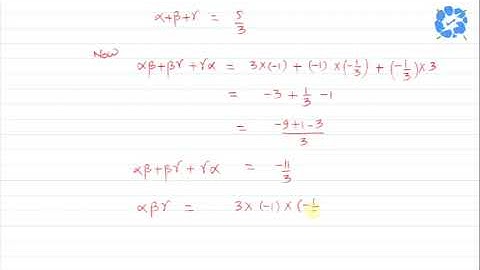 α+β+γ = 5/3
Now
αβ+βγ+γα = 3×(-1) + (-1) × (-1/3) + (-1/3)×3
= -3 + 1/3 -1
= -9+1-3/3
αβ+βγ+γα = -11/3
αβγ = 3 × (-1) × (-1/3